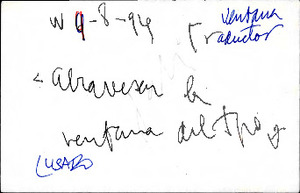 W 4-8-94
ventana
Traductor
< atravesar la
ventana del tpo y
(USADO